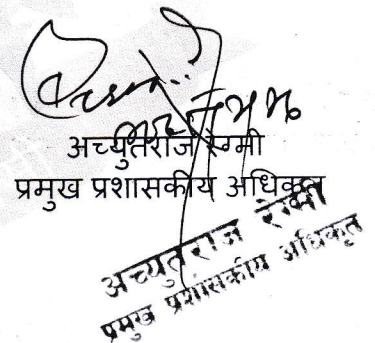 अच्युतराज रेग्मी
प्रमुख प्रशासकीय अधिकृत
अच्युतराज रेग्मी
प्रमुख प्रशासकीय अधिकृत